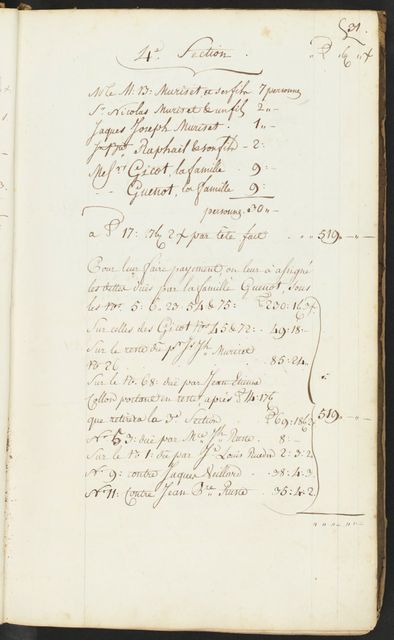 31
4.e Section
Mr le M: B: Muriset & ses fils 7 personnes
Sr Nicolas Muriset & un fils 2 "-
Jaques Joseph Muriset . 1 "-
Raphaël & son fils - 2:
Gicot, la famille . 9: -
- Guenot, la famille 9:
personnes. 30 "-
a ₶ 17: 76 2 par tête fait . . " 519 " — " —
Pour leur faire payement, on leur a assigné
les dettes dües par la famille Guenot, sous
les Nos. 5: 6. 23: 54 & 75: ₶ 230: 16
Sur celles des Gicot Nos 45 & 72: . 49: 18: -
Sur le reste du Muriset
No. 26 . . . 85: 24
Sur le No. 68: düe par Jean Etienne
Collon portant en reste après ₶ 4: 176
que retirera la 3e Section . ₶ 69: 186
No 53: düe par . 8: -
Sur le No 1: düe par Louis Ruedin 2: 3: 2
519 " — " —
No 9: contre Jaques Veillard . . 38: 4. 3
No 11: Contre Jean . 35: 4: 2
" " — " — " —